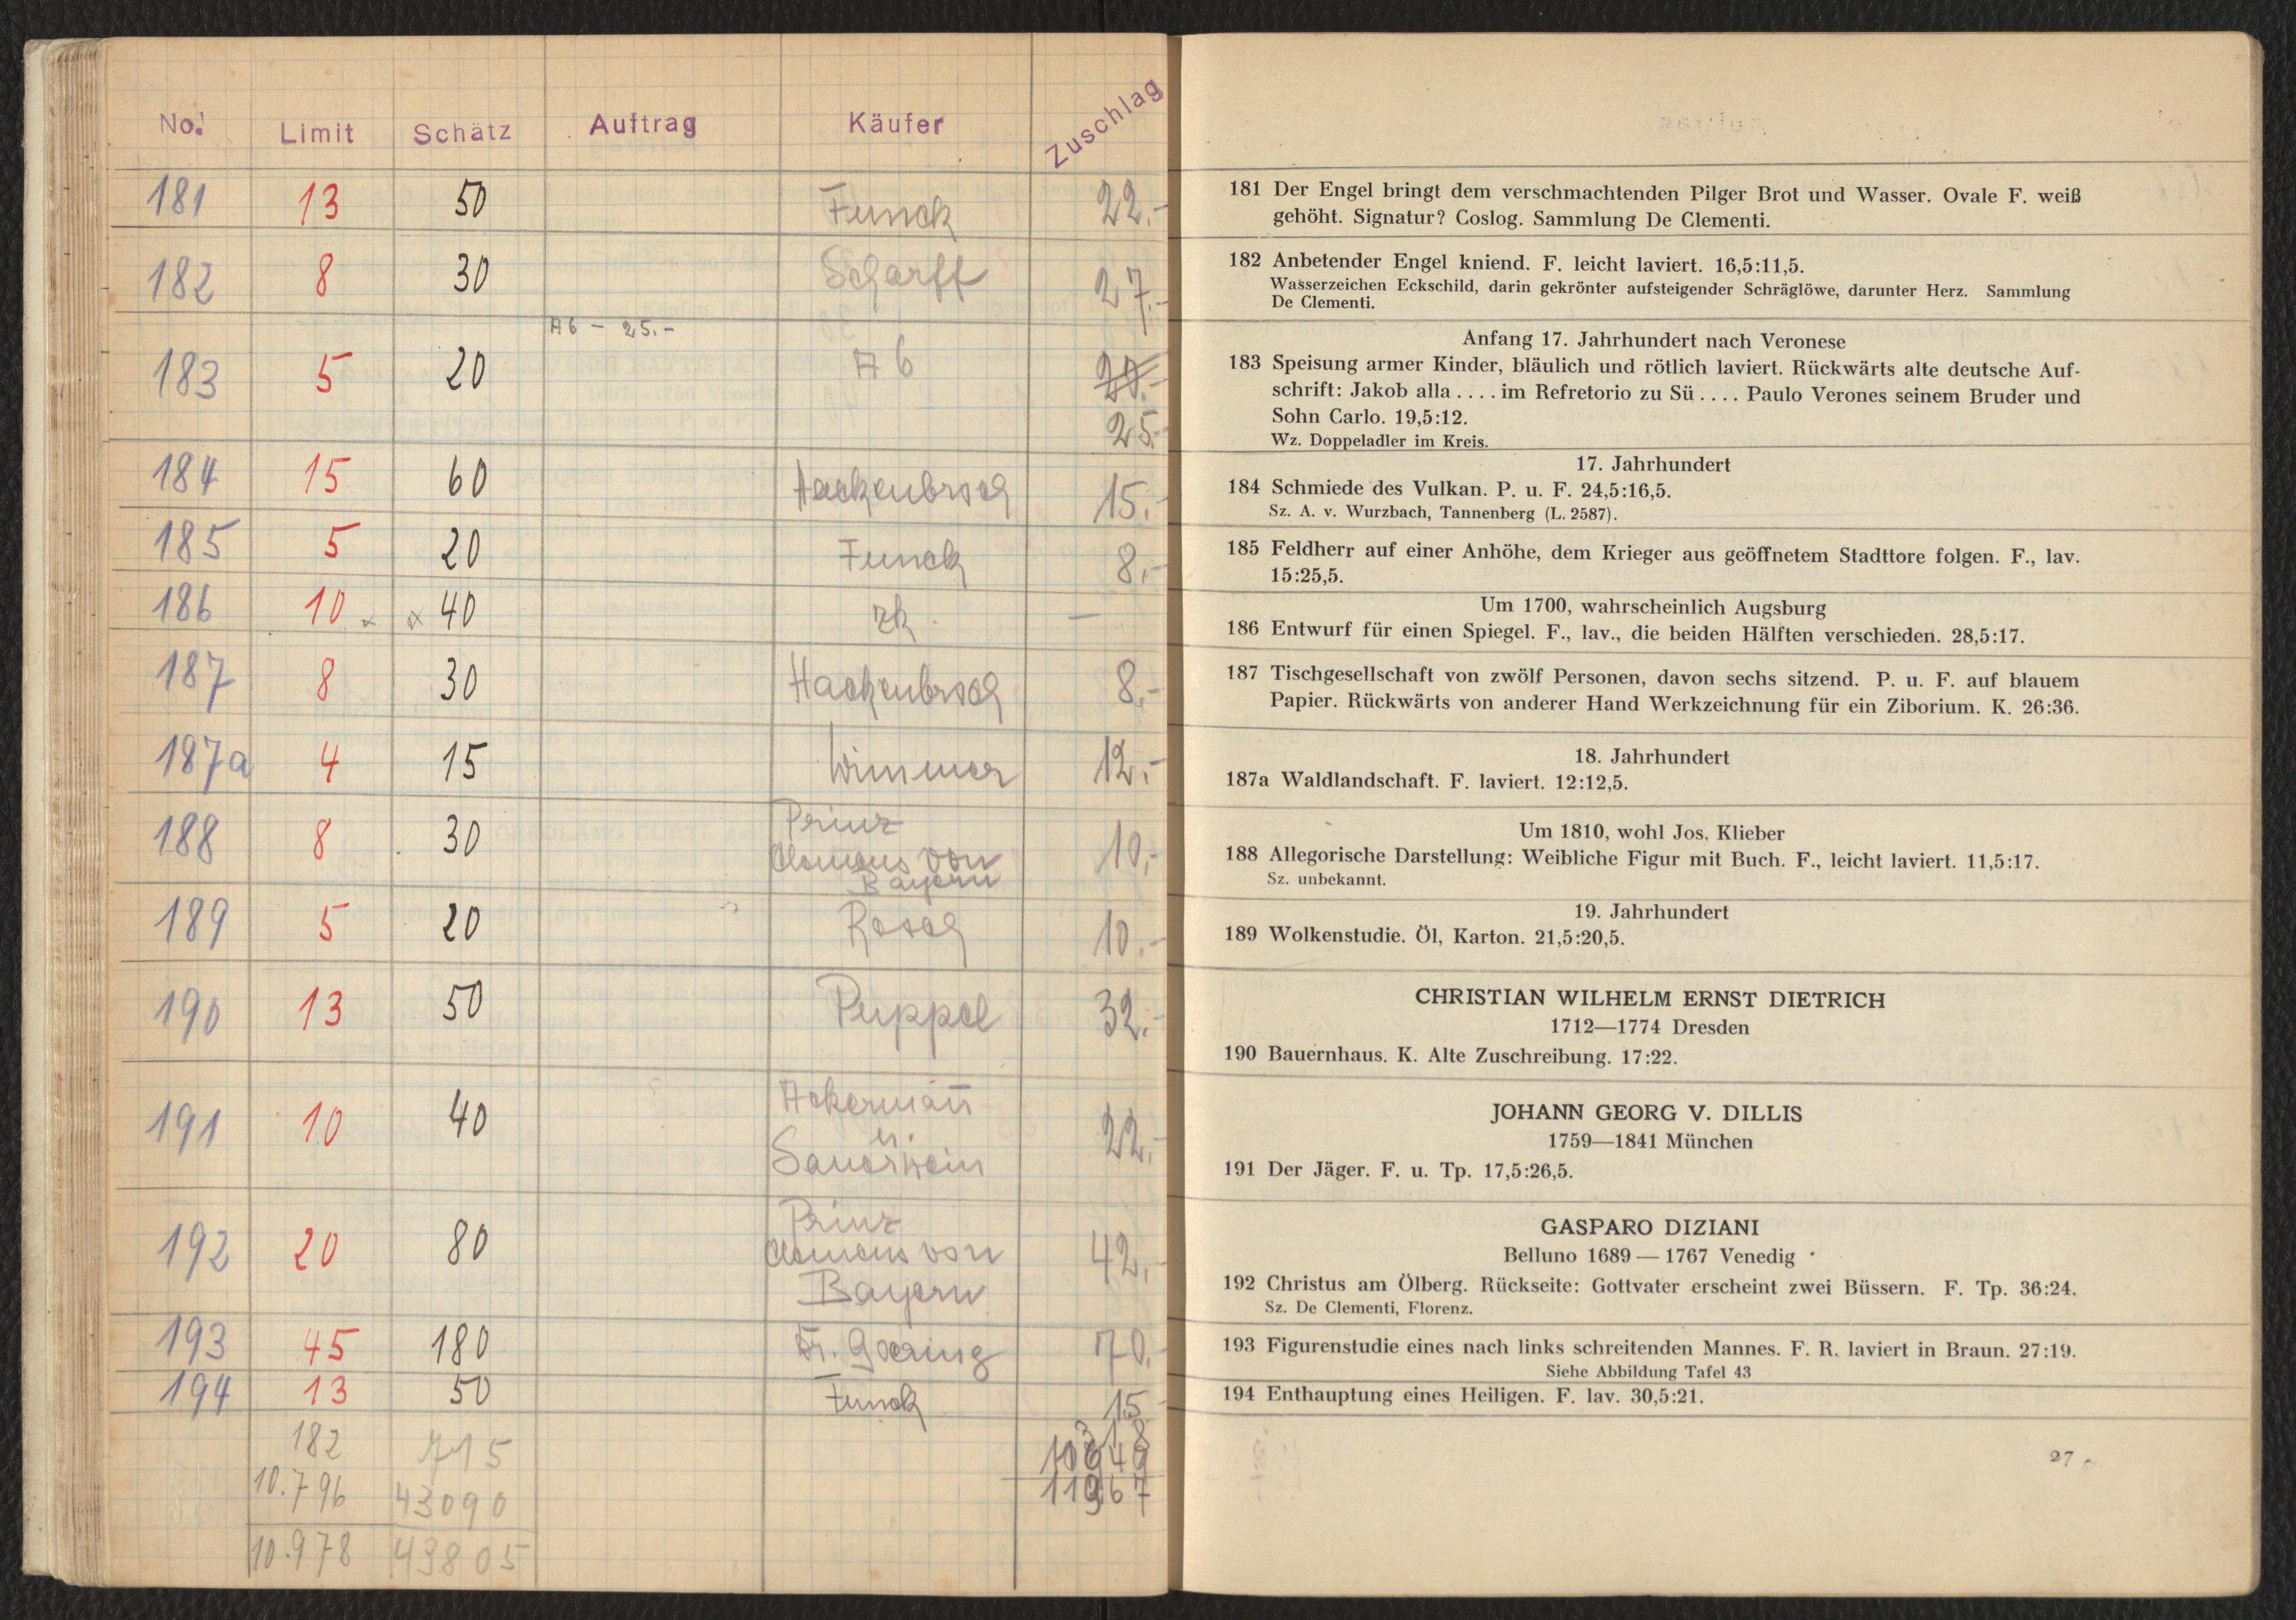 No. Limit Schätz Auftrag Käufer Zuschlag
181 13 50 Funck 22.-
182 8 30 Scharff 27.-
A6 - 25.-
183 5 20 A6 20.-
25.-
184 15 60 Hackenbroch 15.-
185 5 20 Funck 8.-
186 10 x x 40 zk. —
187 8 30 Hackenbroch 8.-
187a 4 15 Wimmer 12.-
188 8 30 Prinz
Clemens von
Bayern 10.-
189 5 20 Rosch 10.-
190 13 50 Puppel 32.-
191 10 40 Ackermañ
u.
Sauerwein 22.-
192 20 80 Prinz
Clemens von
Bayern 42.-
193 45 180 Dr. Goering 70.-
194 13 50 Funck 15
182 715 318
10.796 43090
10.978 43805
181 Der Engel bringt dem verschmachtenden Pilger Brot und Wasser. Ovale F. weiß
gehöht. Signatur? Coslog. Sammlung De Clementi.
182 Anbetender Engel kniend. F. leicht laviert. 16,5:11,5.
Wasserzeichen Eckschild, darin gekrönter aufsteigender Schräglöwe, darunter Herz. Sammlung
De Clementi.
Anfang 17. Jahrhundert nach Veronese
183 Speisung armer Kinder, bläulich und rötlich laviert. Rückwärts alte deutsche Auf-
schrift: Jakob alla .... im Refretorio zu Sü .... Paulo Verones seinem Bruder und
Sohn Carlo. 19,5:12.
Wz. Doppeladler im Kreis.
17. Jahrhundert
184 Schmiede des Vulkan. P. u. F. 24,5:16,5.
Sz. A. v. Wurzbach, Tannenberg (L. 2587).
185 Feldherr auf einer Anhöhe, dem Krieger aus geöffnetem Stadttore folgen. F., lav.
15:25,5.
Um 1700, wahrscheinlich Augsburg
186 Entwurf für einen Spiegel. F., lav., die beiden Hälften verschieden. 28,5:17.
187 Tischgesellschaft von zwölf Personen, davon sechs sitzend. P. u. F. auf blauem
Papier. Rückwärts von anderer Hand Werkzeichnung für ein Ziborium. K. 26:36.
18. Jahrhundert
187a Waldlandschaft. F. laviert. 12:12,5.
Um 1810, wohl Jos. Klieber
188 Allegorische Darstellung: Weibliche Figur mit Buch. F., leicht laviert. 11,5:17.
Sz. unbekannt.
19. Jahrhundert
189 Wolkenstudie. Öl, Karton. 21,5:20,5.
CHRISTIAN WILHELM ERNST DIETRICH
1712—1774 Dresden
190 Bauernhaus. K. Alte Zuschreibung. 17:22.
JOHANN GEORG V. DILLIS
1759—1841 München
191 Der Jäger. F. u. Tp. 17,5:26,5.
GASPARO DIZIANI
Belluno 1689 — 1767 Venedig
192 Christus am Ölberg. Rückseite: Gottvater erscheint zwei Büssern. F. Tp. 36:24.
Sz. De Clementi, Florenz.
193 Figurenstudie eines nach links schreitenden Mannes. F. R. laviert in Braun. 27:19.
Siehe Abbildung Tafel 43
194 Enthauptung eines Heiligen. F. lav. 30,5:21.
27